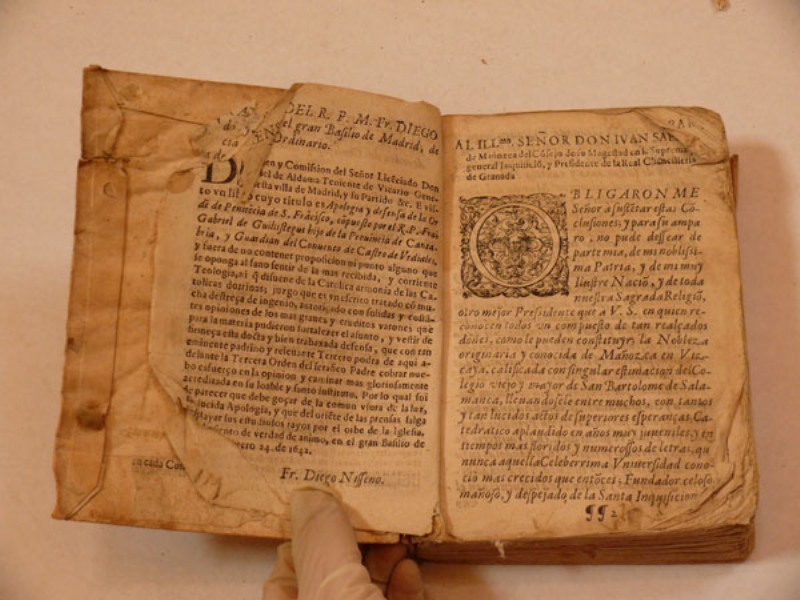 DEL R. P. M. Fr. DIEGO
el gran Basilio de Madrid, de
Ordinario.
en y Comission del Señor Licēciado Don
el de Aldama Teniente de Vicario Gene-
sta villa de Madrid, y su Partido &c. E vis-
cuyo titulo es Apologia y defensa de la Or
dē de Penitēcia de S. Frācisco, cōpuesto por el R.P. Frai
Gabriel de Guillistegui hijo de la Provincia de Canta-
bria, y Guardian del Convento de Castro de Vrdiales,
y fuera de no contener proposicion ni punto alguno que
se oponga al sano sentir de la mas recibida, y corriente
Teologia, ni q̄ disuene de la Catolica armonia de las Ca-
tolicas dotrinas; juzgo que es vn escrito tratado cō mu-
cha destreça de ingenio, autoriçado con solidas y
tes opiniones de los mas graves y eruditos varones que
para la materia pudieron fortalecer el asunto, y vestir de
firmeça esta docta y bien trabaxada defensa, que con tan
eminente padrino y relevante Tercero podra de aqui a-
delante la Tercera Orden del serafico Padre cobrar nue-
bo esfuerço en la opinion y caminar mas gloriosamente
acreditada en su loable y santo instituto. Por lo qual soi
de parecer que debe goçar de la comun vtura de la luz,
lucida Apologia, y que del oriēte de las prensas salga
a explayar sus estudiosos rayos por el orbe de la Iglesia.
de verdad de animo, en el gran Basilio de
24. de 1642.
Fr. Diego Nisseno.
en cada
AL ILL.mo SEÑOR DON IVAN
de Mañozca del Cōsejo de su Magestad en la Suprema
general Inquisiciō, y Presidente de la Real Chancilleria
de Granada
OBLIGARON ME
Señor a sustētar estas Cō
clusiones, y para su ampa
ro, no pude dessear de
parte mia, de mi nobilissi-
ma Patria, y de mi muy
Ilustre Naciō, y de toda
nuestra Sagrada Religiō,
otro mejor Presidente que a V. S. en quien re-
conocen todos vn compuesto de tan realçados
dones, como le pueden constituyr la Nobleza
originaria y conocida de Mañozca en Viz-
caya, calificada con singular estimacion del Co-
legio viejo y mayor de San Bartolome de Sala-
manca, lleuandosele entre muchos, con tantos
y tan lucidos actos de superiores esperanças; Ca-
tedratico aplaudido en años muy juveniles, y in
tiempos mas floridos y numerosos de letras, qu
nunca aquella Celeberrima Vniuersidad cono-
ciò mas crecidos que entōces; Fundador celoso
mañoso, y despejado de la Santa Inquisicion
¶¶ 2